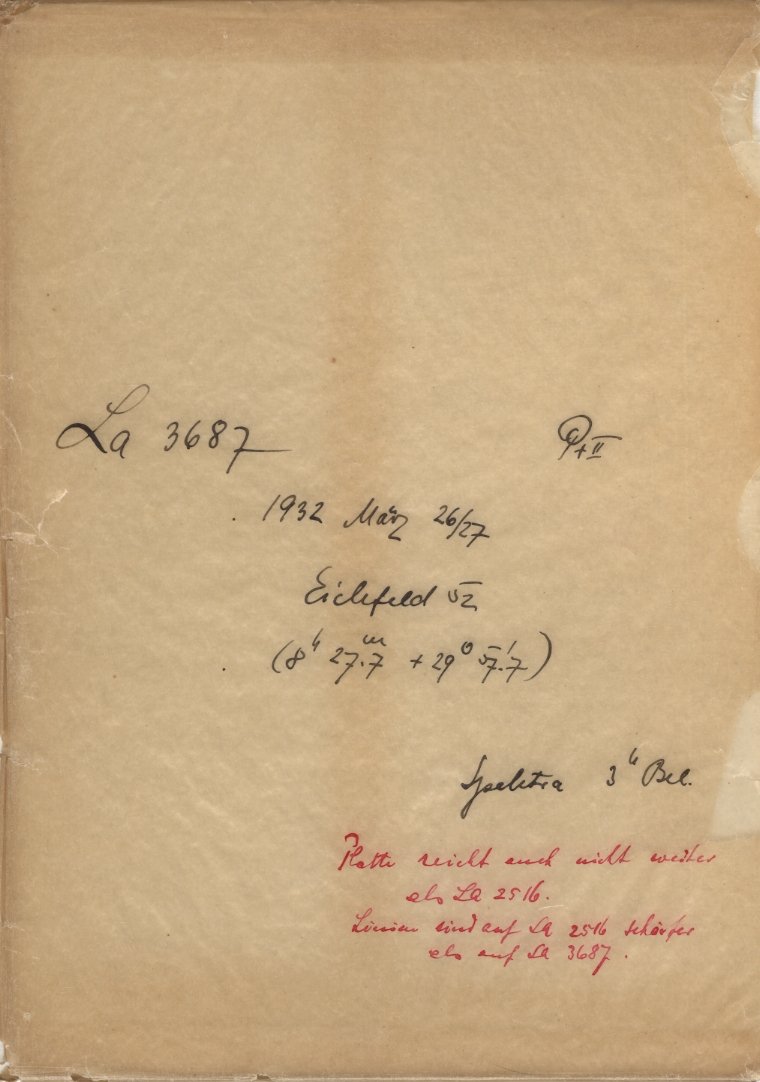 La 3687 P+II
1932 März 26/27
Eichfeld 52
(8h 27m.7 +29° 57'.7)
Spektra 3h Bel.
Platte reicht auch nicht weiter
als La 2516.
Linien sind auf La 2516 schärfer
als auf La 3687.